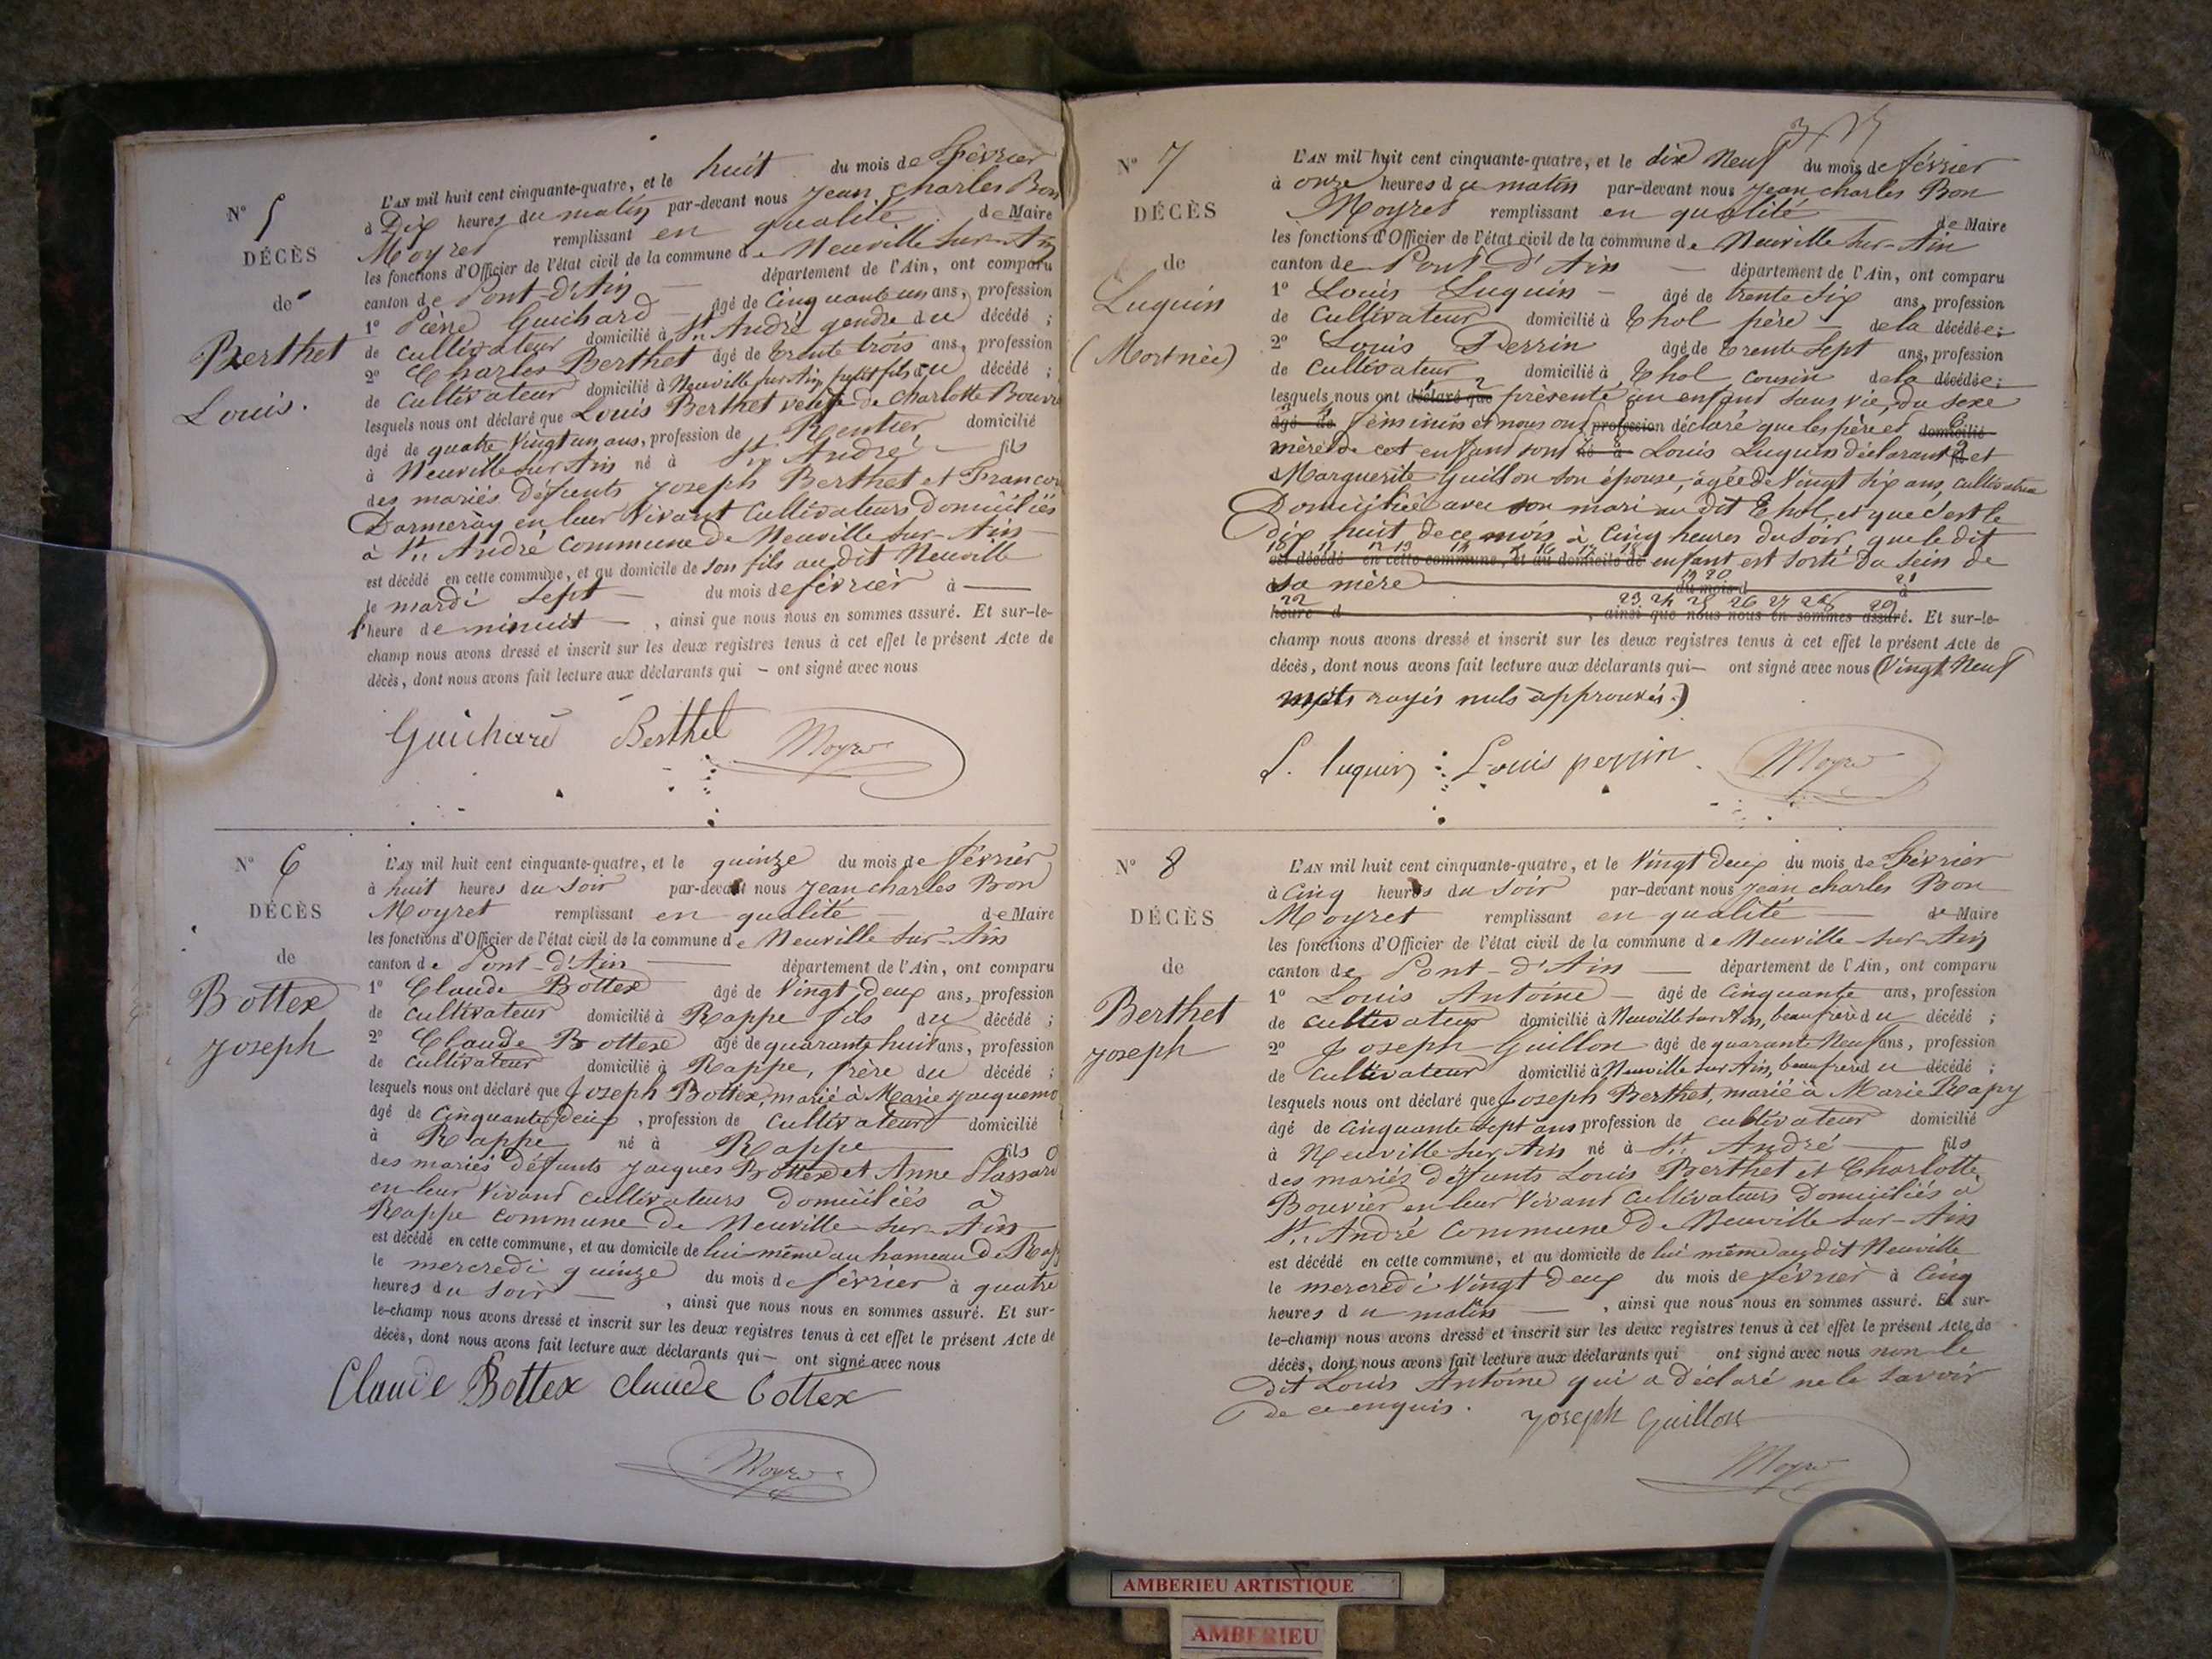 N° 5
DÉCÈS
de
Berthet
Louis.
L'AN mil huit cent cinquante-quatre, et le huit du mois de Février
à Dix heures du matin par-devant nous Jean Charles Bon
Moyret remplissant en qualité de Maire
les fonctions d'Officier de l'état civil de la commune de Neuville sur-Ain
canton de Pont-d'Ain — département de l'Ain, ont comparu
1° Pierre Guichard — âgé de Cinquante un ans, profession
de cultivateur domicilié à St André gendre du décédé ;
2° Charles Berthet âgé de trente trois ans, profession
de Cultivateur domicilié à Neuville sur Ain, petit fils du décédé ;
lesquels nous ont déclaré que Louis Berthet veuf de Charlotte Bouvier
âgé de quatre Vingt un ans, profession de Rentier domicilié
à Neuville sur Ain né à St André — fils
des mariés défunts Joseph Berthet et
en leur Vivant Cultivateurs Domiciliés
à St André Commune de Neuville sur-Ain
est décédé en cette commune, et au domicile de son fils au dit Neuville
le mardi sept — du mois de février à —
l'heure de minuit — , ainsi que nous nous en sommes assuré. Et sur-le-
champ nous avons dressé et inscrit sur les deux registres tenus à cet effet le présent Acte de
décès, dont nous avons fait lecture aux déclarants qui — ont signé avec nous
Guichard Berthet Moyret
N° 6
DÉCÈS
de
Bottex
Joseph
L'AN mil huit cent cinquante-quatre, et le quinze du mois de février
à huit heures du soir par-devant nous Jean charles Bon
Moyret remplissant en qualité — de Maire
les fonctions d'Officier de l'état civil de la commune de Neuville sur-Ain
canton de Pont-d'Ain — département de l'Ain, ont comparu
1° Claude Bottex âgé de Vingt deux ans, profession
de cultivateur domicilié à Rappe fils du décédé ;
2° Claude Bottex âgé de quarante huit ans, profession
de Cultivateur domicilié à Rappe, frère du décédé ;
lesquels nous ont déclaré que Joseph Bottex, marié à Marie
âgé de Cinquante deux , profession de Cultivateur domicilié
à Rappe né à Rappe — fils
des mariés défunts Jacques Bottex et Anne
en leur Vivant cultivateurs Domiciliés à
Rappe commune de Neuville sur-Ain
est décédé en cette commune, et au domicile de lui-même au hameau de Rap
le mercredi quinze du mois de février à quatre
heures du soir — , ainsi que nous nous en sommes assuré. Et sur-
le-champ nous avons dressé et inscrit sur les deux registres tenus à cet effet le présent Acte de
décès, dont nous avons fait lecture aux déclarants qui — ont signé avec nous
Claude Bottex claude Bottex
Moyret
N° 7
DÉCÈS
de
Luquin
(Mort née)
L'AN mil huit cent cinquante-quatre, et le dix Neuf du mois de février
à onze heures du matin par-devant nous Jean charles Bon
Moyret remplissant en qualité — de Maire
les fonctions d'Officier de l'état civil de la commune de Neuville sur-Ain
canton de Pont-d'Ain — département de l'Ain, ont comparu
1° Louis Luquin — âgé de trente six ans, profession
de Cultivateur domicilié à Thol père — de la décédée ;
2° Louis Perrin âgé de trente sept ans, profession
de Cultivateur domicilié à Thol cousin de la décédée ;
lesquels nous ont déclaré que présenté un enfant sans vie, du sexe
âgé de féminin et nous ont profession déclaré que les père et domicilié
mère de cet enfant sont né à Louis Luquin déclarant fils et
Marguerite Guillon son épouse, âgée de Vingt six ans, cultivatrice
Domiciliée avec son mari au dit Thol, et que c'est le
dix huit de ce mois à Cinq heures du soir, que le dit
10 11 12 13 14 15 16 17 18
est décédé en cette commune, et au domicile de enfant est sorti du sein de
19 20 21
sa mère — du mois d à
22 23 24 25 26 27 28 29
heure d , ainsi que nous nous en sommes assuré. Et sur-le-
champ nous avons dressé et inscrit sur les deux registres tenus à cet effet le présent Acte de
décès, dont nous avons fait lecture aux déclarants qui — ont signé avec nous (Vingt Neuf
mots rayés nuls approuvés.)
L. luquin Louis perrin Moyret
N° 8
DÉCÈS
de
Berthet
Joseph
L'AN mil huit cent cinquante-quatre, et le Vingt deux du mois de Février
à Cinq heures du soir par-devant nous Jean charles Bon
Moyret remplissant en qualité — de Maire
les fonctions d'Officier de l'état civil de la commune de Neuville-sur-Ain
canton de Pont-d'Ain — département de l'Ain, ont comparu
1° Louis Antoine — âgé de Cinquante ans, profession
de cultivateur domicilié à Neuville sur Ain, beaufrère du décédé ;
2° Joseph Guillon âgé de quarante Neuf ans, profession
de Cultivateur domicilié à Neuville sur Ain, beaufrère du décédé ;
lesquels nous ont déclaré que Joseph Berthet, marié à Marie Rapy
âgé de Cinquante sept ans profession de cultivateur domicilié
à Neuville sur Ain né à St André — fils
des mariés défunts Louis Berthet et Charlotte
Bouvier en leur Vivant Cultivateurs Domiciliés à
St André Commune de Neuville sur-Ain
est décédé en cette commune, et au domicile de lui même au dit Neuville
le mercredi Vingt deux du mois de février à Cinq
heures du matin — , ainsi que nous nous en sommes assuré. Et sur-
le-champ nous avons dressé et inscrit sur les deux registres tenus à cet effet le présent Acte de
décès, dont nous avons fait lecture aux déclarants qui ont signé avec nous non le
dit Louis Antoine qui a déclaré ne le savoir
de ce enquis.
Joseph Guillon
Moyret
AMBERIEU ARTISTIQUE
AMBERIEU